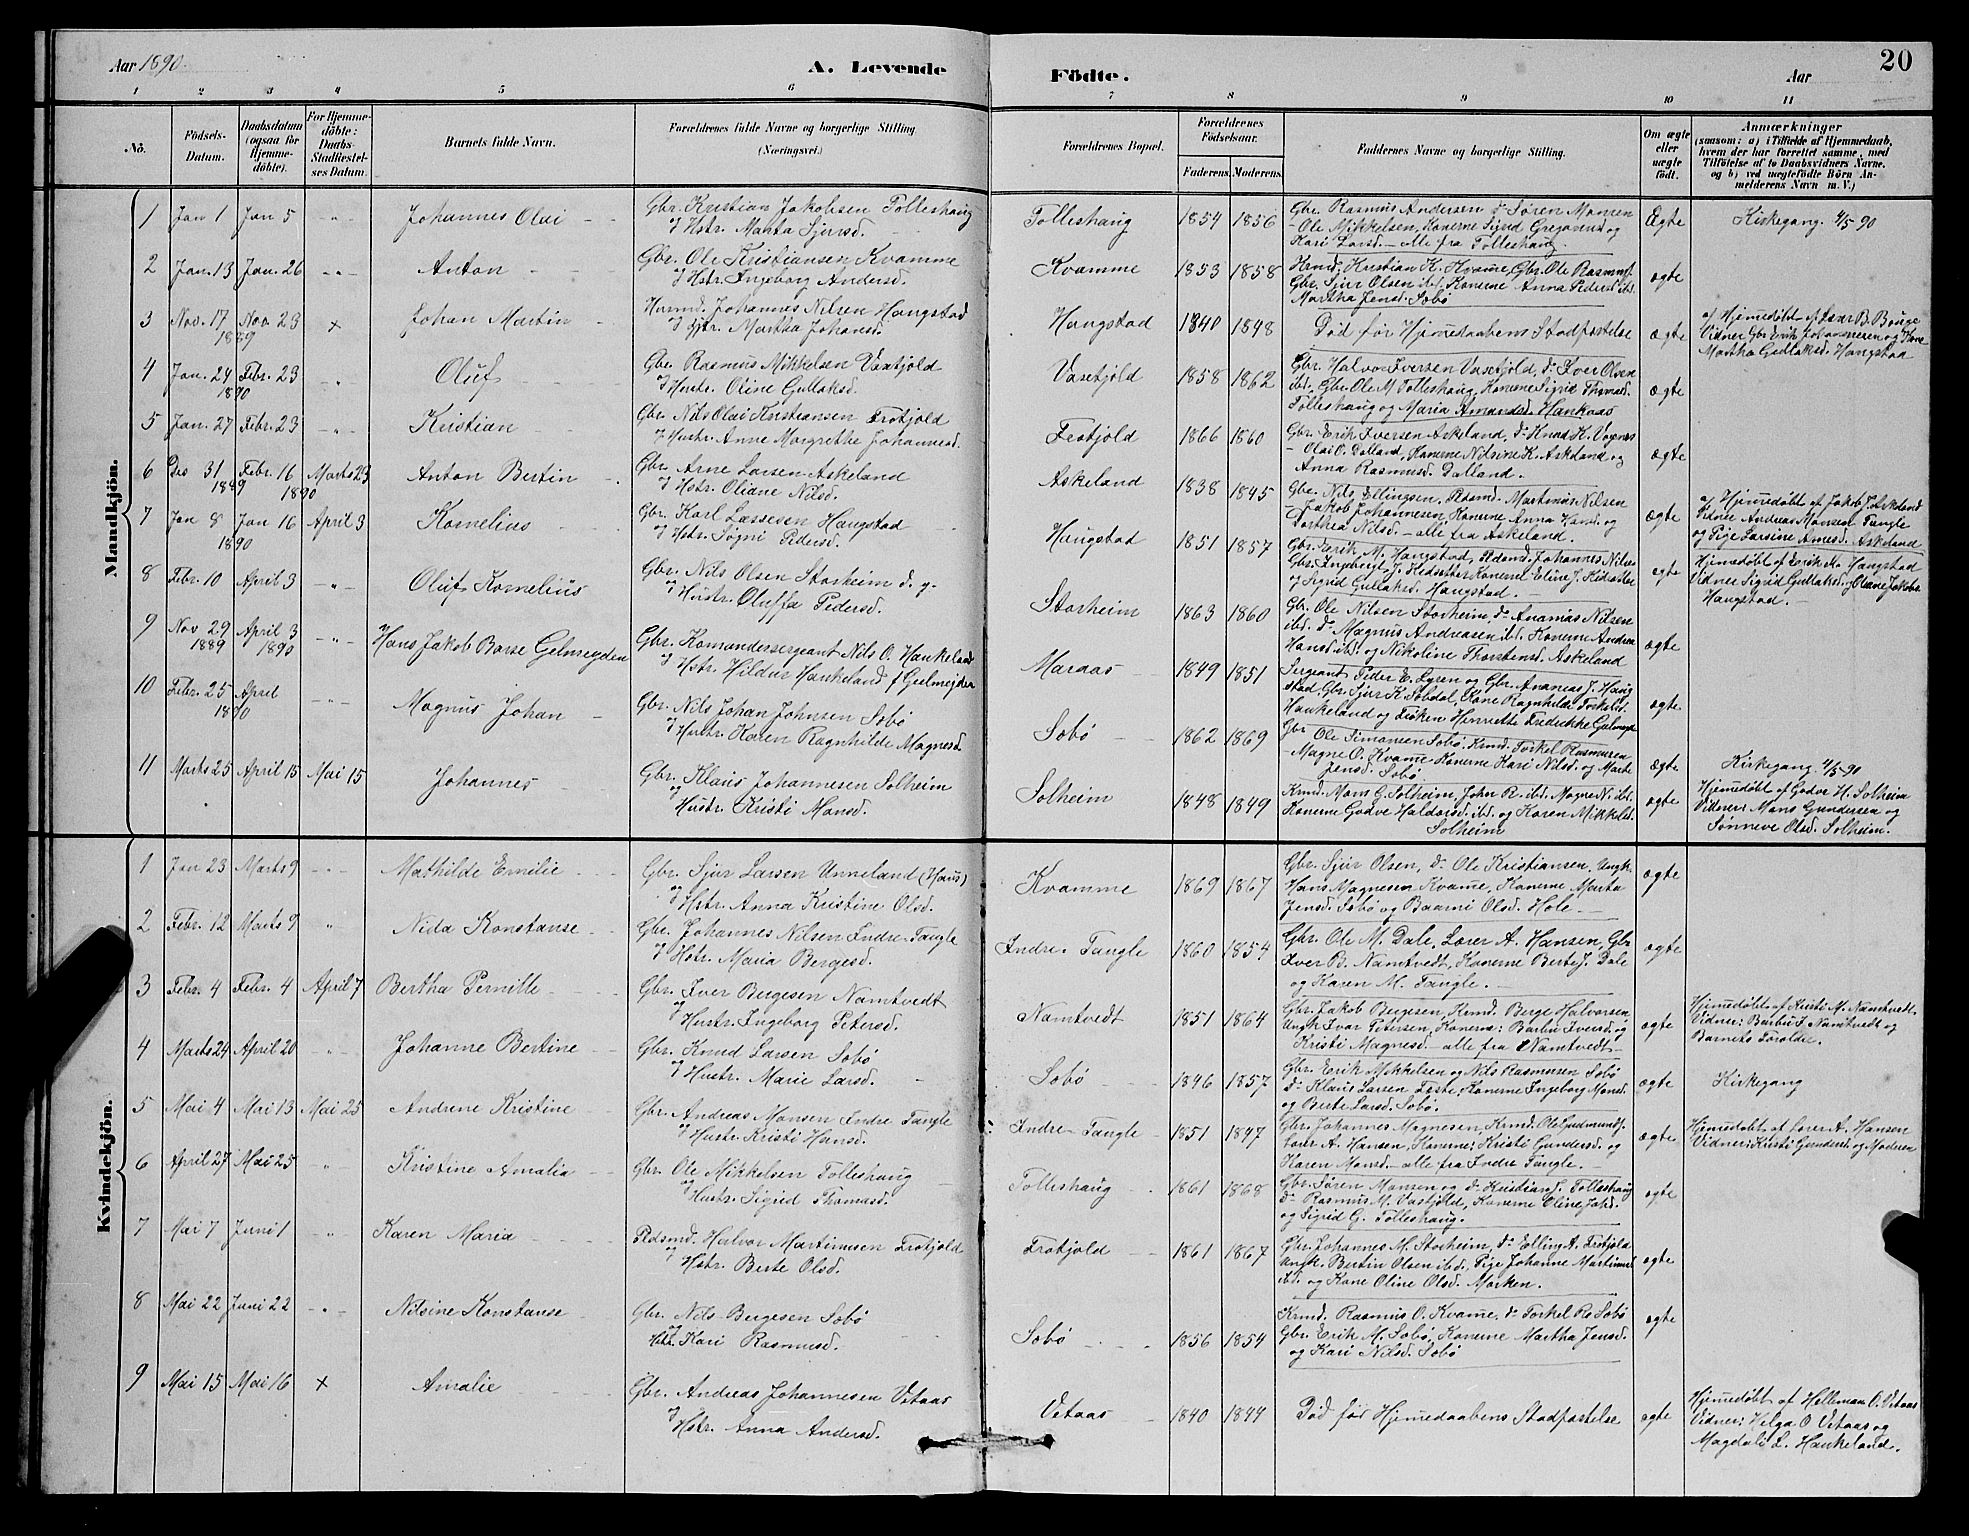 Aar 1890.
A. Levende
Födte.
Aar
20
1 2 3 4 5 6 7 8 9 10 11
Nö.
Födsels-Datum.
Daabsdatum (ogsaa för Hjemmedöbte).
For Hjemmedöbte: Daabs-Stadfæstelses Datum.
Barnets fulde Navn.
Forældrenes fulde Navne og borgerlige Stilling (Næringsvei.)
Forældrenes Bopæl.
Forældrenes Födselsaar.
Faderens. Moderens.
Faddernes Navne og borgerlige Stilling.
Om ægte eller uægte födt.
Anmærkninger
(saasom: a) i Tilfælde af Hjemmedaab, hvem der har forrettet samme, med Tilföielse af to Daabsvidners Navne, og b) ved uægtefödte Börn Anmelderens Navn m. V.)
Mandkjön.
1 Jan 1 Jan 5 -"- Johannes Olai
Gbr. Kristian Jakobsen Tolleshaug
og Hstr. Marta Sjursd.
Tolleshaug 1854 1856
Gbr. Rasmus Andersen do Søren Monsen
- Ole Mikkelsen, Konerne Sigrid Gregoriusd og
Kari Larsd. - alle fra Tolleshaug.
Ægte
Kirkegang 4/5 90
2 Jan. 13 Jan. 26 -"- Anton
Gbr. Ole Kristiansen Kvamme
og Hstr. Ingeborg Andersd.
Kvamme 1853 1858
Krmd. Kristian K. Kvame, Gbr. Ole Rasmuss.
Gbr. Sjur Olsen ibd. Konerne Anna Pedersd ibd.
Martha Jensd. Sobø
ægte
3 Nov. 17 Nov. 23 x Johan Martin
1889
Husmd. Johannes Nilsen Haugstad
og Hstr. Martha Johansd.
Haugstad 1840 1848
Død før Hjemedaabens Stadfæstelse
ægte
af Hjemedøbt af Lærer B. Bruge
Vidner Gbr Erik Johannesen og Kone
Martha Gullaksd. Haugstad
4 Jan. 24 Febr. 23 -"- Oluf
1890
Gbr. Rasmus Mikkelsen Vaxtjold
og Hustr. Oline Gullaksd.
Vaxtjold 1858 1862
Gbr. Halvor Iversen Vaxtjold, do Iver Olsen
ibd. Gbr. Ole M. Tolleshaug, Konerne Sigrid Thomasd.
Tolleshaug og Maria Amundsd. Hankaas
ægte
5 Jan. 27 Febr. 23 -"- Kristian
Gbr. Nils Olai Kristiansen Frotjold
og Hustr. Anne Margrethe Johannesd.
Festjold 1866 1860
Gbr. Erik Iversen Askeland, do Knud K. Voxnes
- Olai O. Dalland, Konerne Nilsine K. Askeland og
Anna Rasmusd. Dalland.
ægte
6 Des 31 Febr. 16 Marts 23 Anton Bertin
1889 1890
Gbr. Arne Larsen Askeland
og Hstr. Oliane Nilsd.
Askeland 1838 1845
Gbr. Nils Ellingsen, Plasmd. Martinus Nilsen
- Jakob Johannesen, Konerne Anna Hansd. og
Dorthea Nilsd. - alle fra Askeland.
ægte
af Hjemedøbt af Jakob J. Askeland
Vidner Andreas Monsen Tangle
og Pige Larsine Arnesd. Askeland
7 Jan 8 Jan 16 April 3 Kornelius
1890
Gbr. Karl Lassesen Haugstad
og Hstr. Søgni Pedersd.
Haugstad 1851 1857
Gbr. Erik M. Haugstad, Pldsmd. Johannes Nilsen
Gbr. Ingebrigt J. Hedsetter, Konerne Eline J. Hidsetter
og Sigrid Gullaksd. Haugstad.
ægte
Hjemedøbt af Erik M. Haugstad
Vidner Sigrid Gullaksd. og Oliane Jakobs.
Haugstad.
8 Febr. 10 April 3 -"- Oluf Kornelius
Gbr. Nils Olsen Storheim d. y.
og Hustr. Oluffa Pedersd.
Storheim 1863 1860
Gbr. Ole Nilsen Storheim, do Ananias Nilsen
ibd. do Magnus Andreasen ibd. Konerne Andrea
Hansd. ibd. og Nikoline Thorstensd. Askeland
ægte
9 Nov. 29 April 3 -"- Hans Jakob Barse Gelmeyden
1889 1890
Gbr. Komandersergeant Nils O. Haukeland
og Hstr. Hildur Haukeland f. Geelmejden
Maraas 1849 1851
Sergeant Peder E. Lyren og Gbr. Ananias J. Haugstad,
Gbr. Sjur K. Søbdal, Kone Ragnhilde Torkelsd.
Haukeland og Frøken Henriette Fredrikke Gelmeyde
ægte
10 Febr. 25 April -"- Magnus Johan
1890
Gbr. Nils Johan Johnsen Sobø
og Hustr. Karen Ragnhilde Magnesd
Sobø 1862 1869
Gbr Ole Simonsen Sobø, Krmd. Torkel Rasmusen
- Magne O. Kvame Konerne Kari Nilsd. og Marte
Jensd. Sobø
ægte
Kirkegang 4/5 90
11 Marts 25 April 15 Mai 15 Johannes
Gbr. Klaus Johannesen Solheim
og Hustr. Kristi Monsd.
Solheim 1848 1849
Krmd. Mons G. Solheim, John R. ibd. Magne N. ibd.
Konerne Godve Haldorsd. ibd. og Karen Mikkelsd.
Solheim
ægte
Hjemedøbt af Godve H. Solheim
Vidner: Mons Gundersen og
Sønneve Olsd. Solheim.
Kvindekjön.
1 Jan 23 Marts 9 -"- Mathilde Emilie
Gbr. Sjur Larsen Unneland (Haus)
og Hstr. Anna Kristine Olsd.
Kvamme 1869 1867
Gbr. Sjur Olsen, do Ole Kristiansen, Ungk.
Hans Magnesen Kvame, Konerne Marta
Jensd. Sobø og Baarni Olsd. Hole.
ægte
2 Febr. 12 Marts 9 " Nida Konstanse
Gbr. Johannes Nilsen Indre-Tangle
og Hstr. Maria Bergesd.
Indre-Tangle 1860 1854
Gbr. Ole M. Dale, Lærer A. Hansen, Gbr
Iver B. Namtvedt, Konerne Berte J. Dale
og Karen M. Tangle.
ægte
3 Febr. 4 Febr. 4 April 7 Bertha Pernille
Gbr. Iver Bergesen Namtvedt
og Hustr. Ingeborg Petersd.
Namtvedt 1851 1864
Gbr. Jakob Bergesen, Krmd. Berge Halvorsen
Ungk. Ivar Petersen, Konerne: Barbu Iversd. og
Kristi Magnesd. - alle fra Namtvedt
ægte
Hjemedøbt af Kristi M. Namtvedt.
Vidner: Barbu I. Namtvedt og
Barnets Forældre.
4 Marts 24 April 20 -"- Johanne Bertine
Gbr. Knud Larsen Sobø
og Hustr. Marie Larsd.
Sobø 1846 1857
Gbr. Erik Mikkelsen og Nils Rasmusen Sobø
do Klaus Larsen Feste, Konerne Ingeborg Monsd.
og Berte Larsd. Sobø.
ægte
Kirkegang
5 Mai 4 Mai 13 Mai 25 Andrine Kristine
Gbr. Andreas Monsen Indre Tangle
og Hustr. Kristi Hansd.
Indre-Tangle 1851 1847
Gbr. Johannes Magnesen, Krmd. Ole Gudmunds.
Lærer A. Hansen, Konerne: Kristi Gundersd. og
Karen Monsd. - alle fra Indre Tangle.
ægte
Hjemedøbt af Lærer A. Hansen
Vidner: Kristi Gundersd. og Moderen
6 April 27 Mai 25 " Kristine Amalia
Gbr. Ole Mikkelsen Tolleshaug
og Hustr. Sigrid Thomasd.
Tolleshaug 1861 1868
Gbr. Søren Monsen og do Kristian J. Tolleshaug
do Rasmus M. Vaxtjold, Konerne Oline Jakd.
og Sigrid G. Tolleshaug.
ægte
7 Mai 7 Juni 1 " Karen Maria
Pldsmd. Halvor Martinusen Frotjold
og Hstr. Berte Olsd.
Frotjold 1861 1867
Gbr. Johannes M. Storheim, do Elling A. Frotjold
Ungk. Bertin Olsen ibd., Pige Johanne Martinusd
ibd. og Kone Oline Olsd. Marken.
ægte
8 Mai 22 Juni 22 -"- Nilsine Konstanse
Gbr. Nils Bergesen Sobø
og Hstr. Kari Rasmusd.
Sobø 1856 1854
Krmd. Rasmus O. Kvame, do Torkel R. Sobø
Gbr. Erik M. Sobø, Konerne Martha Jensd.
og Kari Nilsd. Sobø
ægte
9 Mai 15 Mai 16 x Amalie
Gbr. Andreas Johannesen Vetaas
og Hstr. Anna Andersd.
Vetaas 1840 1844
Død før Hjemedaabens Stadfæstelse
ægte
Hjemedøbt af Helleman O. Vetaas
Vidner: Helga O Vetaas og
Magdali L. Haukeland.